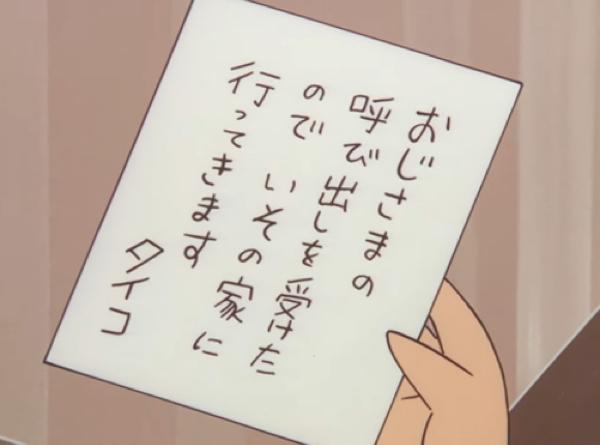 おじさまの
呼び出しを受けた
ので いその家に
行ってきます
タイコ